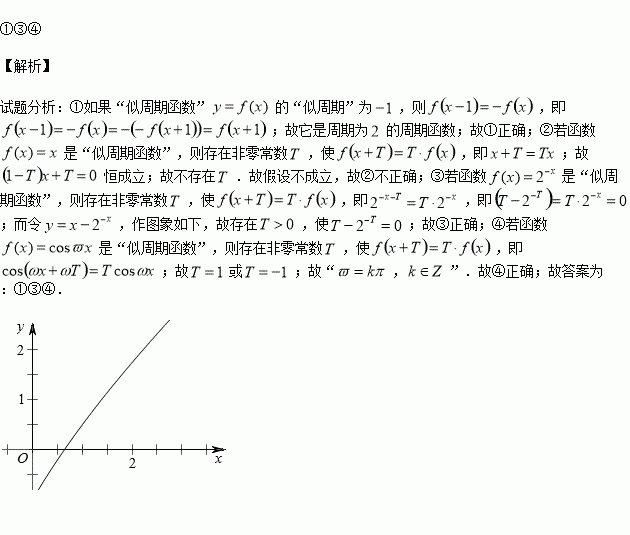 ①③④
【解析】
试题分析：①如果“似周期函数” y = f(x) 的“似周期”为 −1 ，则 f(x−1)=−f(x) ，即
f(x−1)=−f(x)=−(−f(x+1))=f(x+1) ；故它是周期为 2 的周期函数；故①正确；②若函数
f(x)=x 是“似周期函数”，则存在非零常数 T ，使 f(x+T)=T·f(x) ，即 x+T=Tx ；故
(1−T)x+T=0 恒成立；故不存在 T ．故假设不成立，故②不正确；③若函数 f(x)=2^{−x} 是“似周
期函数”，则存在非零常数 T ，使 f(x+T)=T·f(x) ，即 2^{−x−T}=T·2^{−x} ，即 (T−2^{−T})=T·2^{−x}=0
；而令 y=x−2^{−x} ，作图象如下，故存在 T>0 ，使 T−2^{−T}=0 ；故③正确；④若函数
f(x)=cosϖx 是“似周期函数”，则存在非零常数 T ，使 f(x+T)=T·f(x) ，即
cos(ωx+ωT)=Tcosωx ；故 T=1 或 T=−1 ；故“ ϖ=kπ ， k∈Z ”．故④正确；故答案为
：①③④．
y
2
1
O 2 x